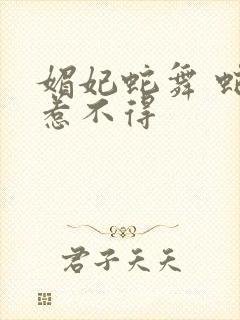 媚妃蛇舞 蛇
惹不得
君子天天